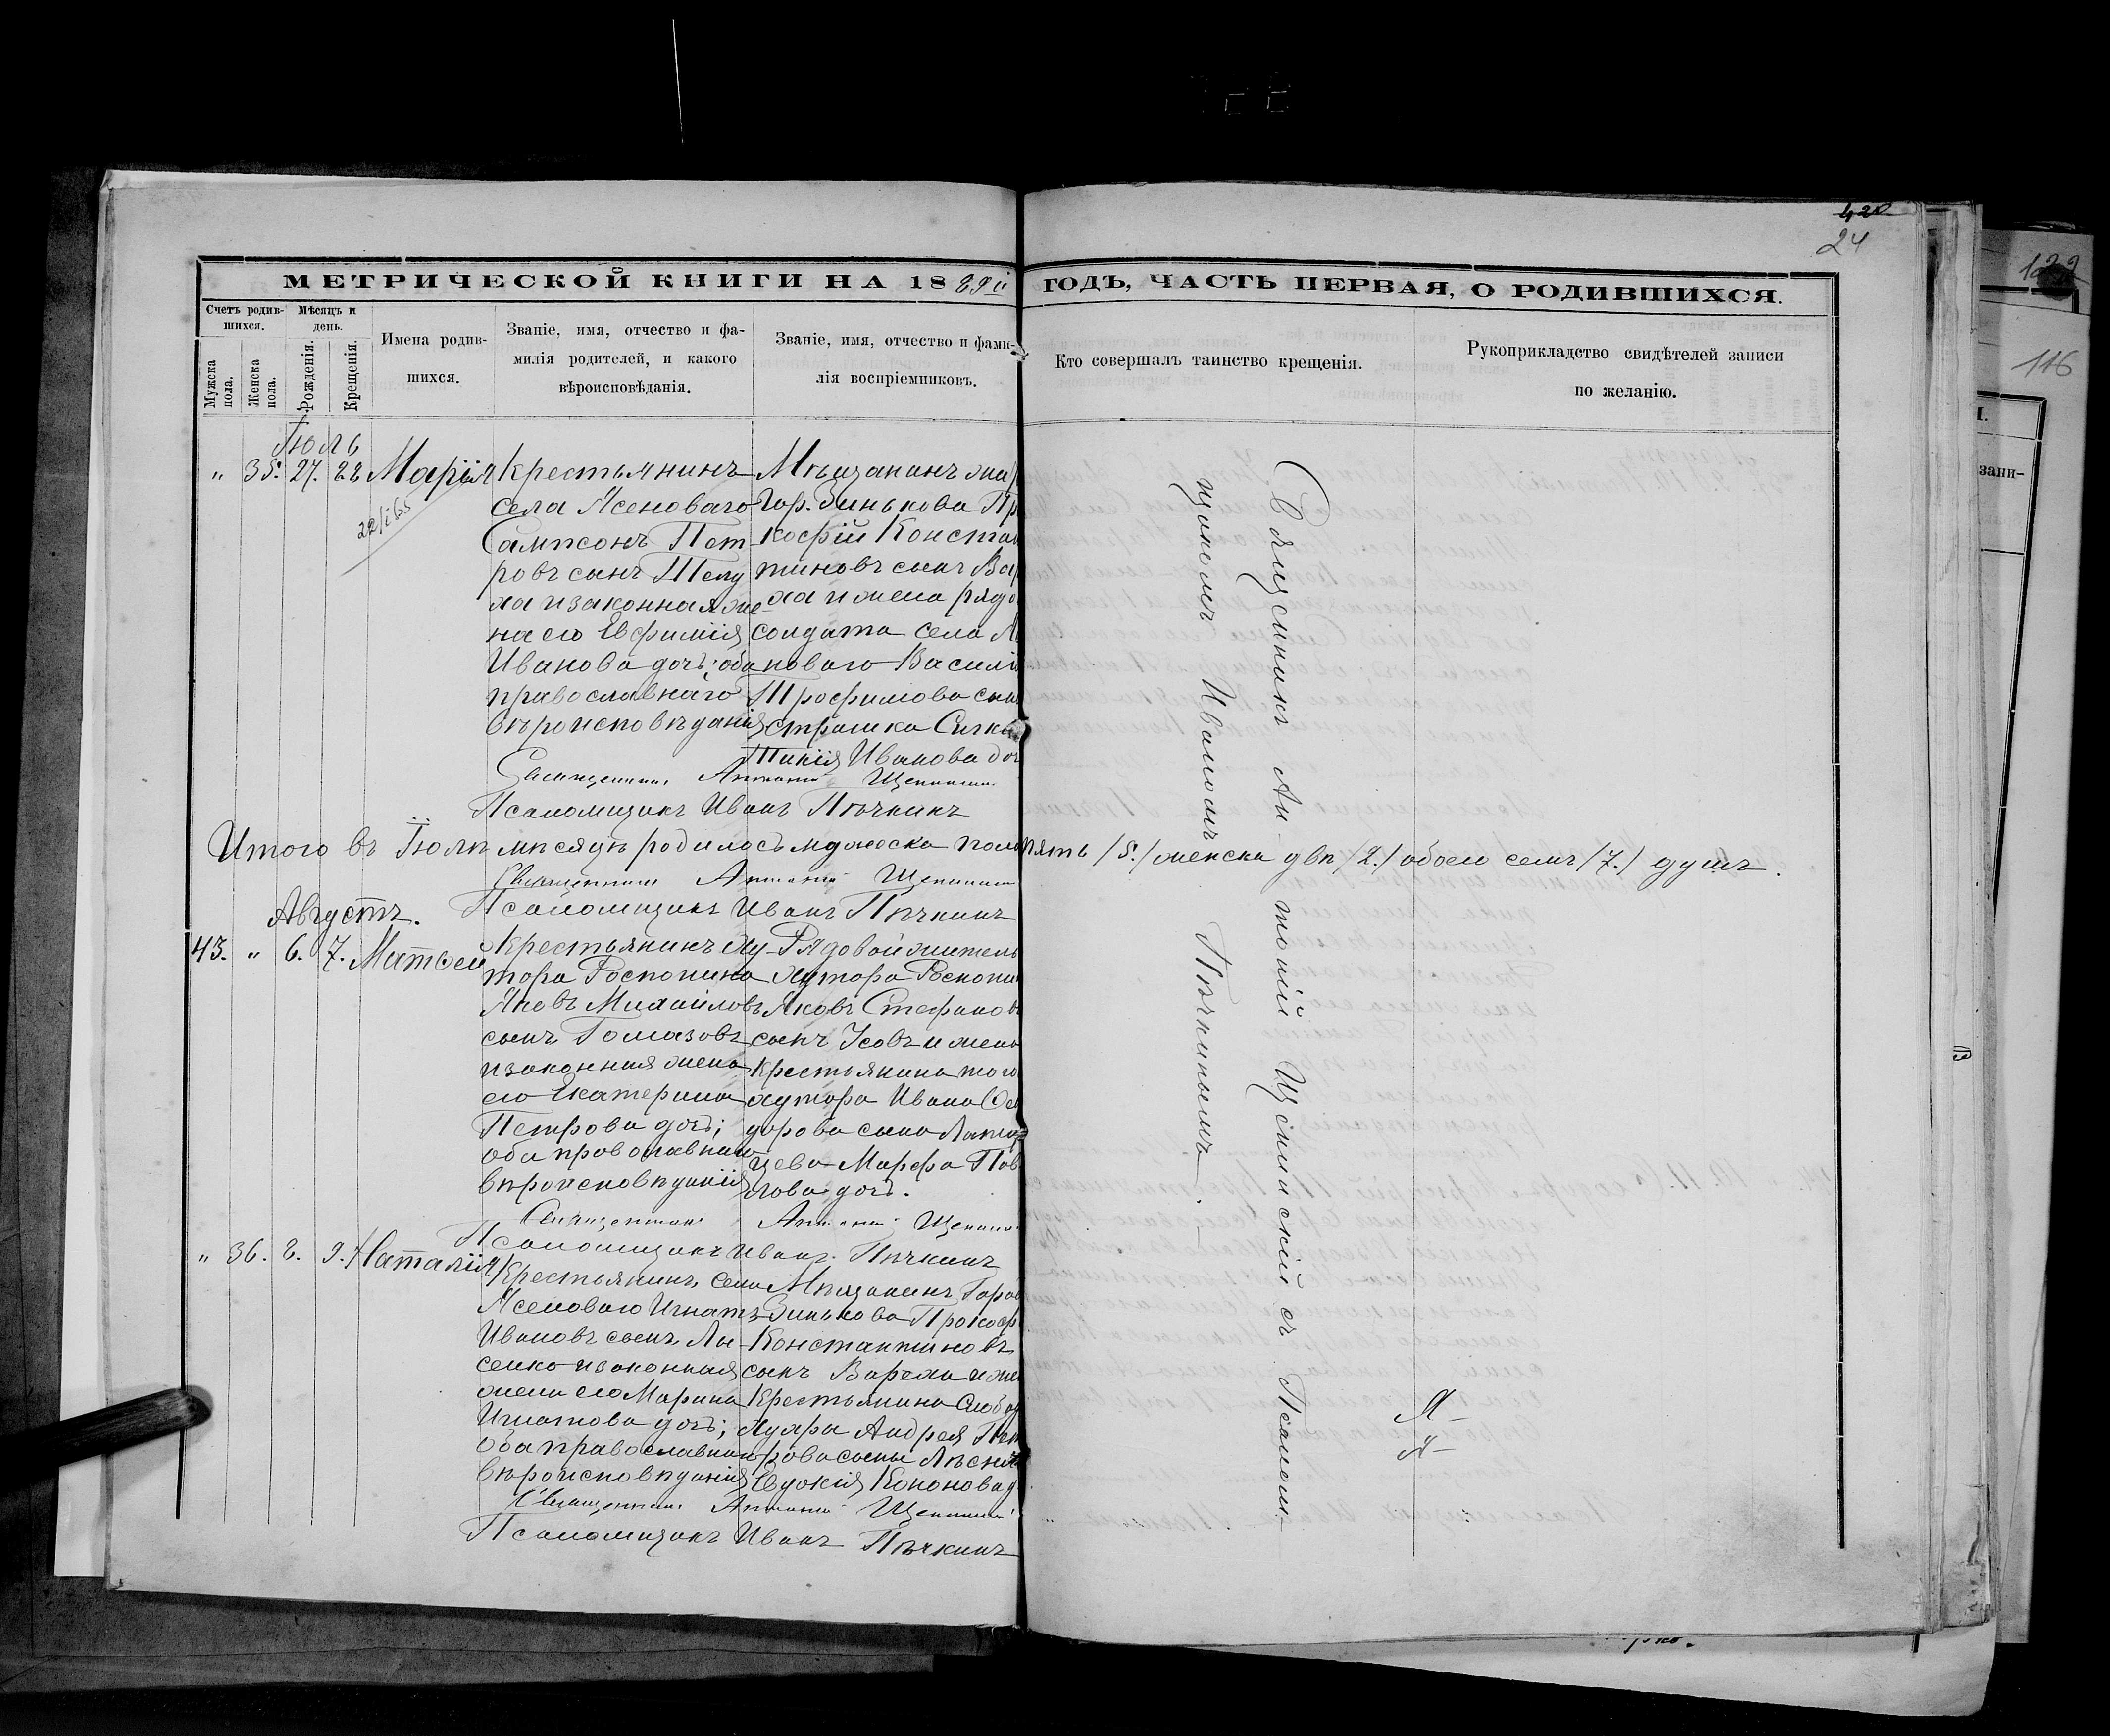 420
24
122
116
МЕТРИЧЕСКОЙ КНИГИ НА 1889й ГОДЪ, ЧАСТЬ ПЕРВАЯ, О РОДИВШИХСЯ.
Счетъ родив-
шихся.
Мужска
пола.
Женска
пола.
Мѣсяцъ и
день.
Рожденія.
Крещенія.
Имена родив-
шихся.
Званіе, имя, отчество и фа-
милія родителей, и какого
вѣроисповѣданія.
Званіе, имя, отчество и фами-
лія воспріемниковъ.
Кто совершалъ таинство крещенія.
Рукоприкладство свидѣтелей записи
по желанію.
зани-
Іюль
" 35. 27. 28 Марія
Крестьянинъ
села Ясеноваго
Сампсонъ Пет-
ровъ сынъ Шелу
ха и законная же-
на его Евфимія
Иванова дочь; оба
православнаго
вѣроисповѣданія
Мѣщанинъ
Гор. Зинькова Пр
кофій Констан
тиновъ сынъ Вар
ха и жена рядо
солдата села
новаго Васил
Трофимова сын
Иванова доч
Священникъ Антоній Щепинскій
Псаломщикъ Иванъ Пѣчкинъ
Итого въ Іюлѣ мѣсяцѣ родилось мужеска пола пять /5./ женска двѣ /2./ обоего семь /7./ душъ.
Священникъ Антоній Щепинскій
Псаломщикъ Иванъ Пѣчкинъ
Августъ.
43. " 6. 7. Матвей
Крестьянинъ ху-
тора Роспопина
Яковъ Михайловъ
сынъ Гомазовъ
и законная жена
его Екатерина
Петрова дочь;
оба православнаго
вѣроисповѣданія
Рядовой житель
хутора Роспопи
Яковъ Стефанов
сынъ Усовъ и жена
крестьянина того
хутора Ивана Фе
дорова сына
цева Марфа Пав
лова дочь.
Священникъ Антоній Щепинс
Псаломщикъ Иванъ Пѣчкинъ
" 36. 8. 9. Наталія
Крестьянинъ села
Ясеноваго Игнатъ
Ивановъ сынъ Лы-
сенко и законная
жена его Марина
Игнатова дочь;
оба православнаго
вѣроисповѣданія
Мѣщанинъ Горо
Зинькова Прокоф
Константиновъ
сынъ Варха и же
крестьянина Слобод
Андрея Пет
рова сына
Евдокія Кононова д
Священникъ Антоній Щепинскій
Псаломщикъ Иванъ Пѣчкинъ
Священникъ Антоній Щепинскій съ Псалом-
щикомъ Иваномъ Пѣчкинымъ.